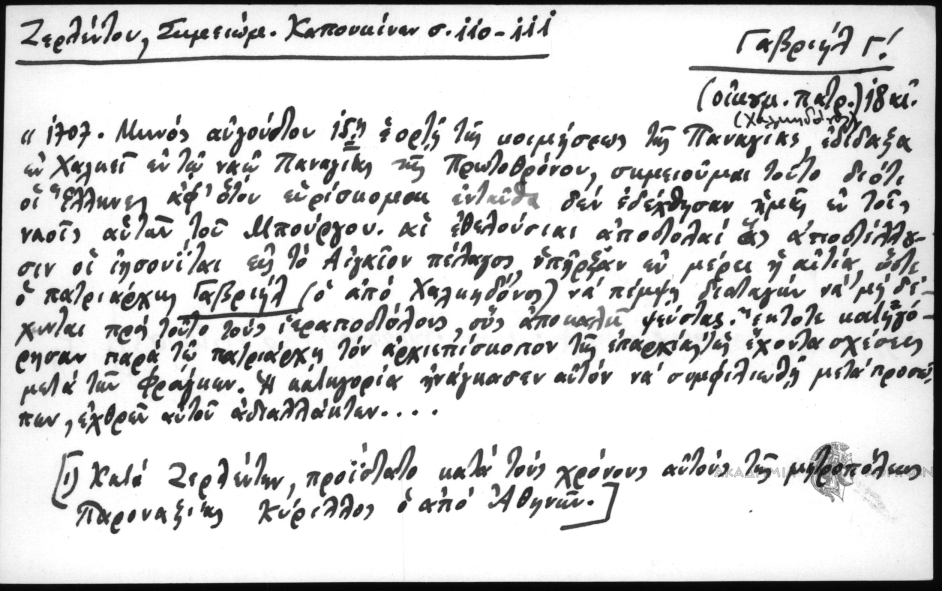 Ζερλέντου, Σημειώμ. Καπουκίνων σ. 110-111
Γαβριήλ Γ΄.
(οἰκουμ. πατρ.) 18 αἰ.
(Χαλκηδόνος)
« 1707. Μηνός αὐγούστου 15ῃ ἑορτῇ τῆς κοιμήσεως τῆς Παναγίας, ἐδίδαξα
ἐν Χαλκεῖ ἐν τῷ ναῷ Παναγίας τῆς Πρωτοθρόνου, σημειοῦμαι τοῦτο διότι
οἱ Ἕλληνες ἀφ' ὅτου εὑρίσκομαι ἐνταῦθα δέν ἐδέχθησαν ἡμᾶς ἐν τοῖς
ναοῖς αὐτῶν τοῦ Μπούργου. αἱ ἐθελούσιαι ἀποστολαί ἅς ἀποστέλλου-
σιν οἱ ἰησουΐται εἰς τό Αἰγαῖον πέλαγος, ὑπῆρξαν ἐν μέρει ἡ αἰτία ὥστε
ὁ πατριάρχης Γαβριήλ (ὁ ἀπό Χαλκηδόνος) νά πέμψῃ διαταγήν νά μή δέ-
χωνται πρός τοῦτο τούς ἱεραποστόλους, οὕς ἀποκαλεῖ ψεύστας. Ἔκτοτε κατηγό-
ρησαν παρά τῷ πατριάρχῃ τόν ἀρχιεπίσκοπον τῆς ἐπαρχίας ὡς ἔχοντα σχέσεις
μετά τῶν Φράγκων. Ἡ κατηγορία ἠνάγκασεν αὐτόν νά συμφιλιωθῇ μετά προσώ-
πων, ἐχθρῶν αὐτοῦ ἀδιαλλάκτων....
[1) Κατά Ζερλέντην, προΐστατο κατά τούς χρόνους αὐτούς τῆς μητροπόλεως
Παροναξίας Κύριλλος ὁ ἀπό Ἀθηνῶν.]